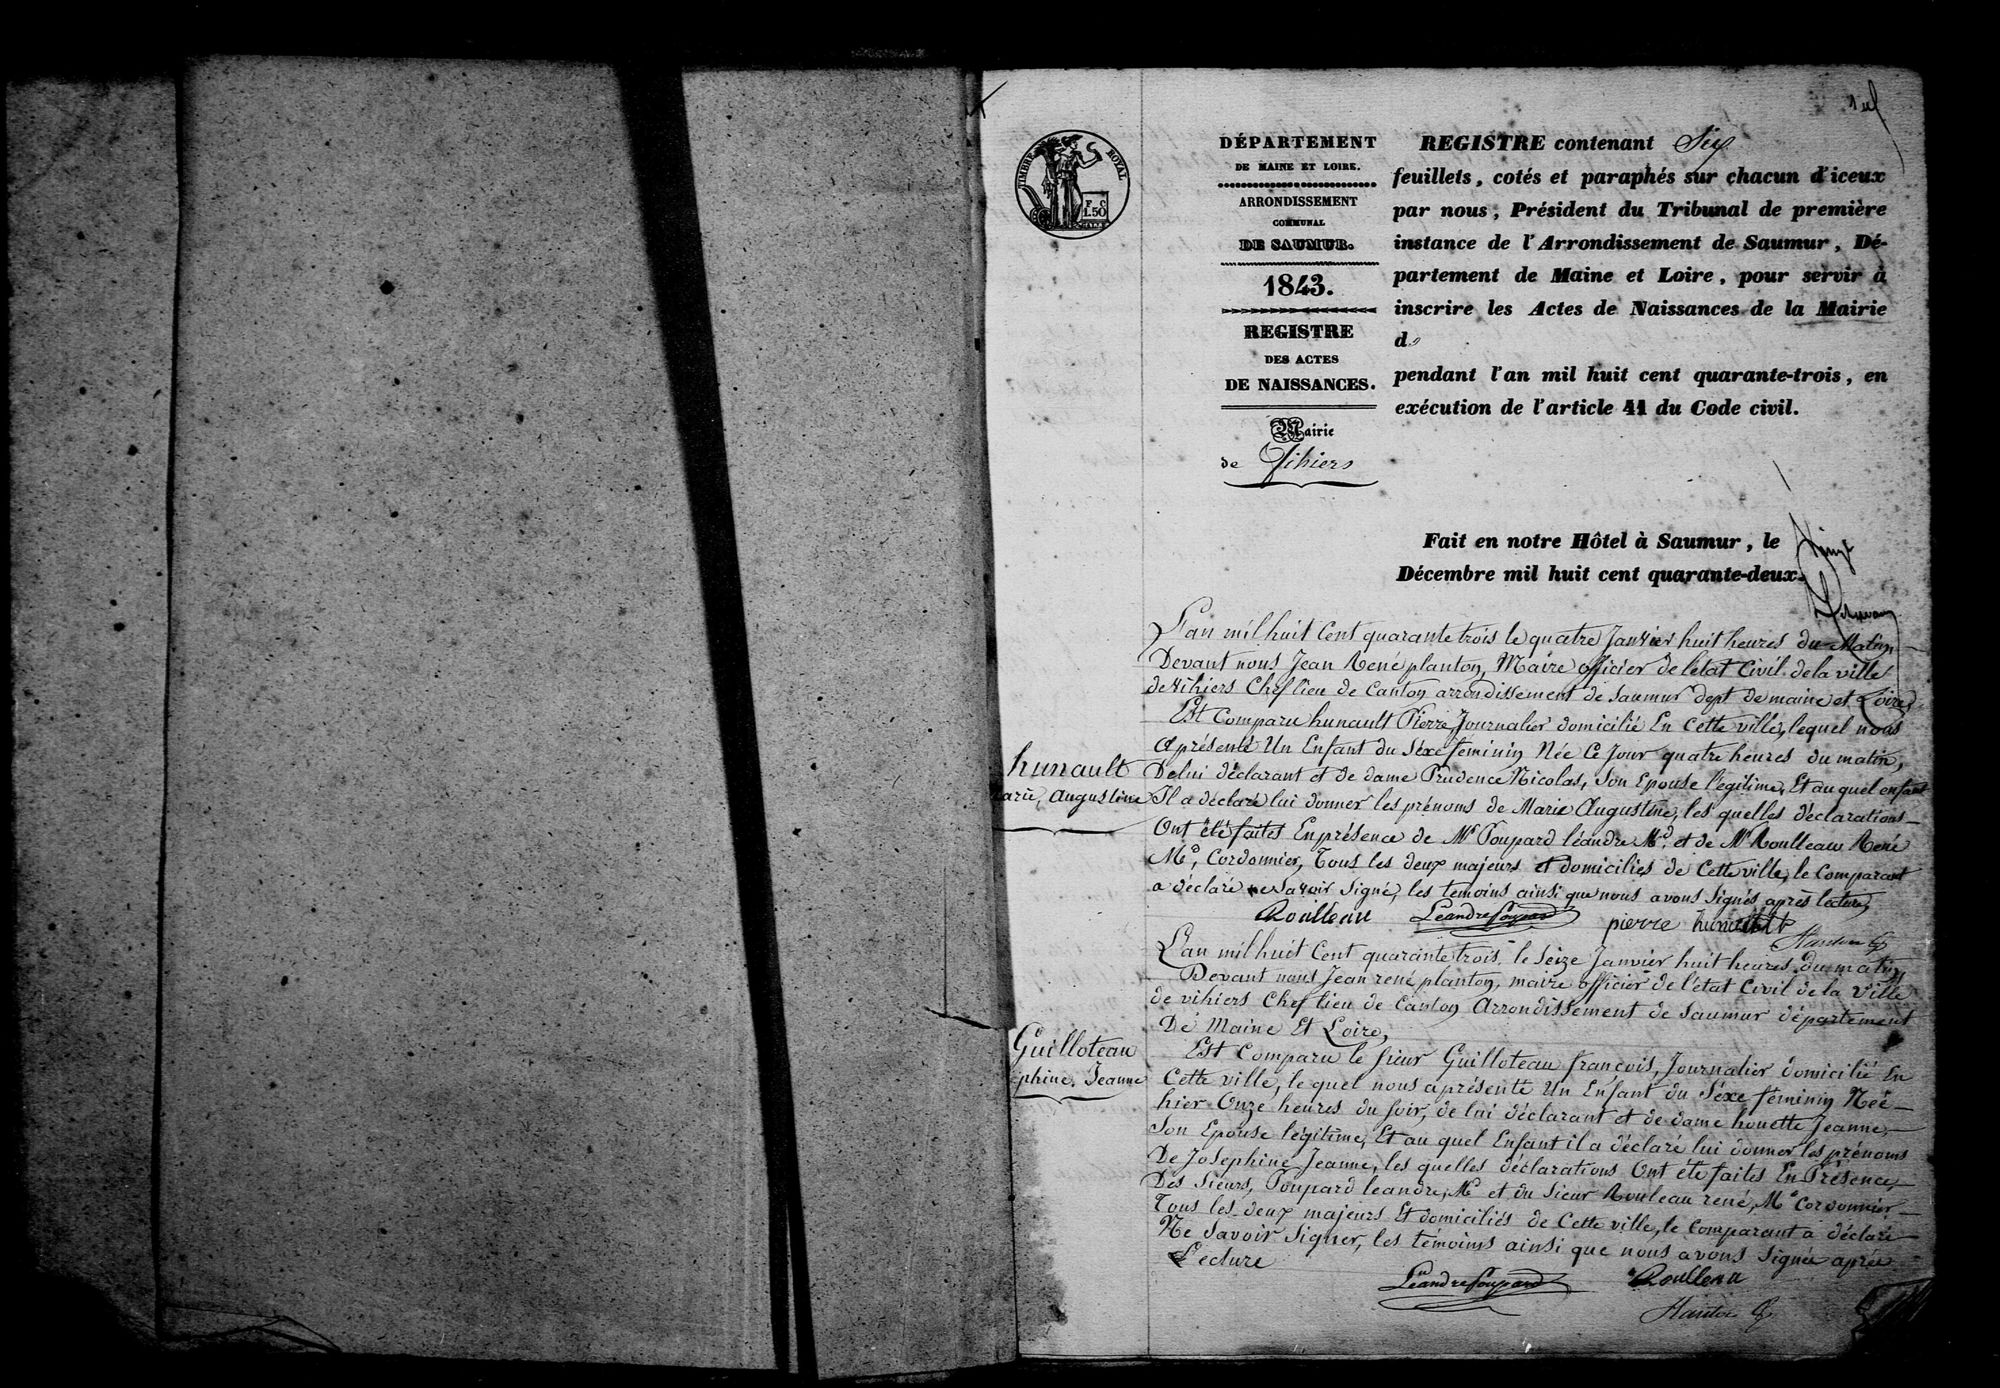 TIMBRE ROYAL
F C
1.50
DÉPARTEMENT
DE MAINE ET LOIRE.
ARRONDISSEMENT
COMMUNAL
DE SAUMUR.
1843.
REGISTRE
DES ACTES
DE NAISSANCES.
Mairie
de Vihiers
REGISTRE contenant Six
feuillets, cotés et paraphés sur chacun d'iceux
par nous, Président du Tribunal de première
instance de l'Arrondissement de Saumur, Dé-
partement de Maine et Loire, pour servir à
inscrire les Actes de Naissances de la Mairie
d
pendant l'an mil huit cent quarante-trois, en
exécution de l'article 41 du Code civil.
Fait en notre Hôtel à Saumur, le Vingt
Décembre mil huit cent quarante-deux.
L'an mil huit Cent quarante trois le quatre Janvier huit heures du Matin
Devant nous Jean René planton, Maire officier de l'état Civil de la ville
de Vihiers Chef lieu de Canton arrondissement de Saumur dept de maine et Loire,
Est Comparu hunault Pierre, Journalier domicilié En Cette ville, lequel nous
a présenté Un Enfant du Séxe féminin Née Ce Jour quatre heures du matin,
De lui déclarant et de dame Prudence Nicolas, Son Epouse légitime, Et au quel enfant
hunault
Marie, Augustine
Il a déclaré lui donner les prénoms de Marie Augustine, les quelles déclarations
Ont été faites En présence de Mr Poupard léandre Md. et de Mr Roulleau René
Md, Cordonnier, Tous les deux majeurs et domiciliés de Cette ville, le Comparant
a déclaré ne Savoir Signé, les témoins ainsi que nous avons Signés après lecture,
Roulleau Léandre Poupard pierre hunault
L'an mil huit Cent quarante trois, le Seize Janvier huit heures du matin
Devant nous Jean rené planton, maire officier de l'état Civil de la Ville
de vihiers Chef lieu de Canton Arrondissement de Saumur département
De Maine Et Loire,
Guilloteau
phine, Jeanne
Est Comparu le Sieur Guilloteau françois, Journalier domicilié En
Cette ville, le quel nous a présenté Un Enfant du Séxe féminin Née
hier Onze heures du Soir, de lui déclarant et de dame houette Jeanne,
Son Epouse légitime, Et au quel Enfant il a déclaré lui donner les prénoms
De Josephine Jeanne, les quelles déclarations Ont été faites En Présence
Des Sieurs, Poupard leandre, Md et du Sieur Rouleau rené, Md Cordonnier
Tous les deux majeurs Et domiciliés de Cette ville, le Comparant a déclaré
Ne Savoir Signer, les témoins ainsi que nous avons Signée après
Lecture
Léandre Poupard Roulleau